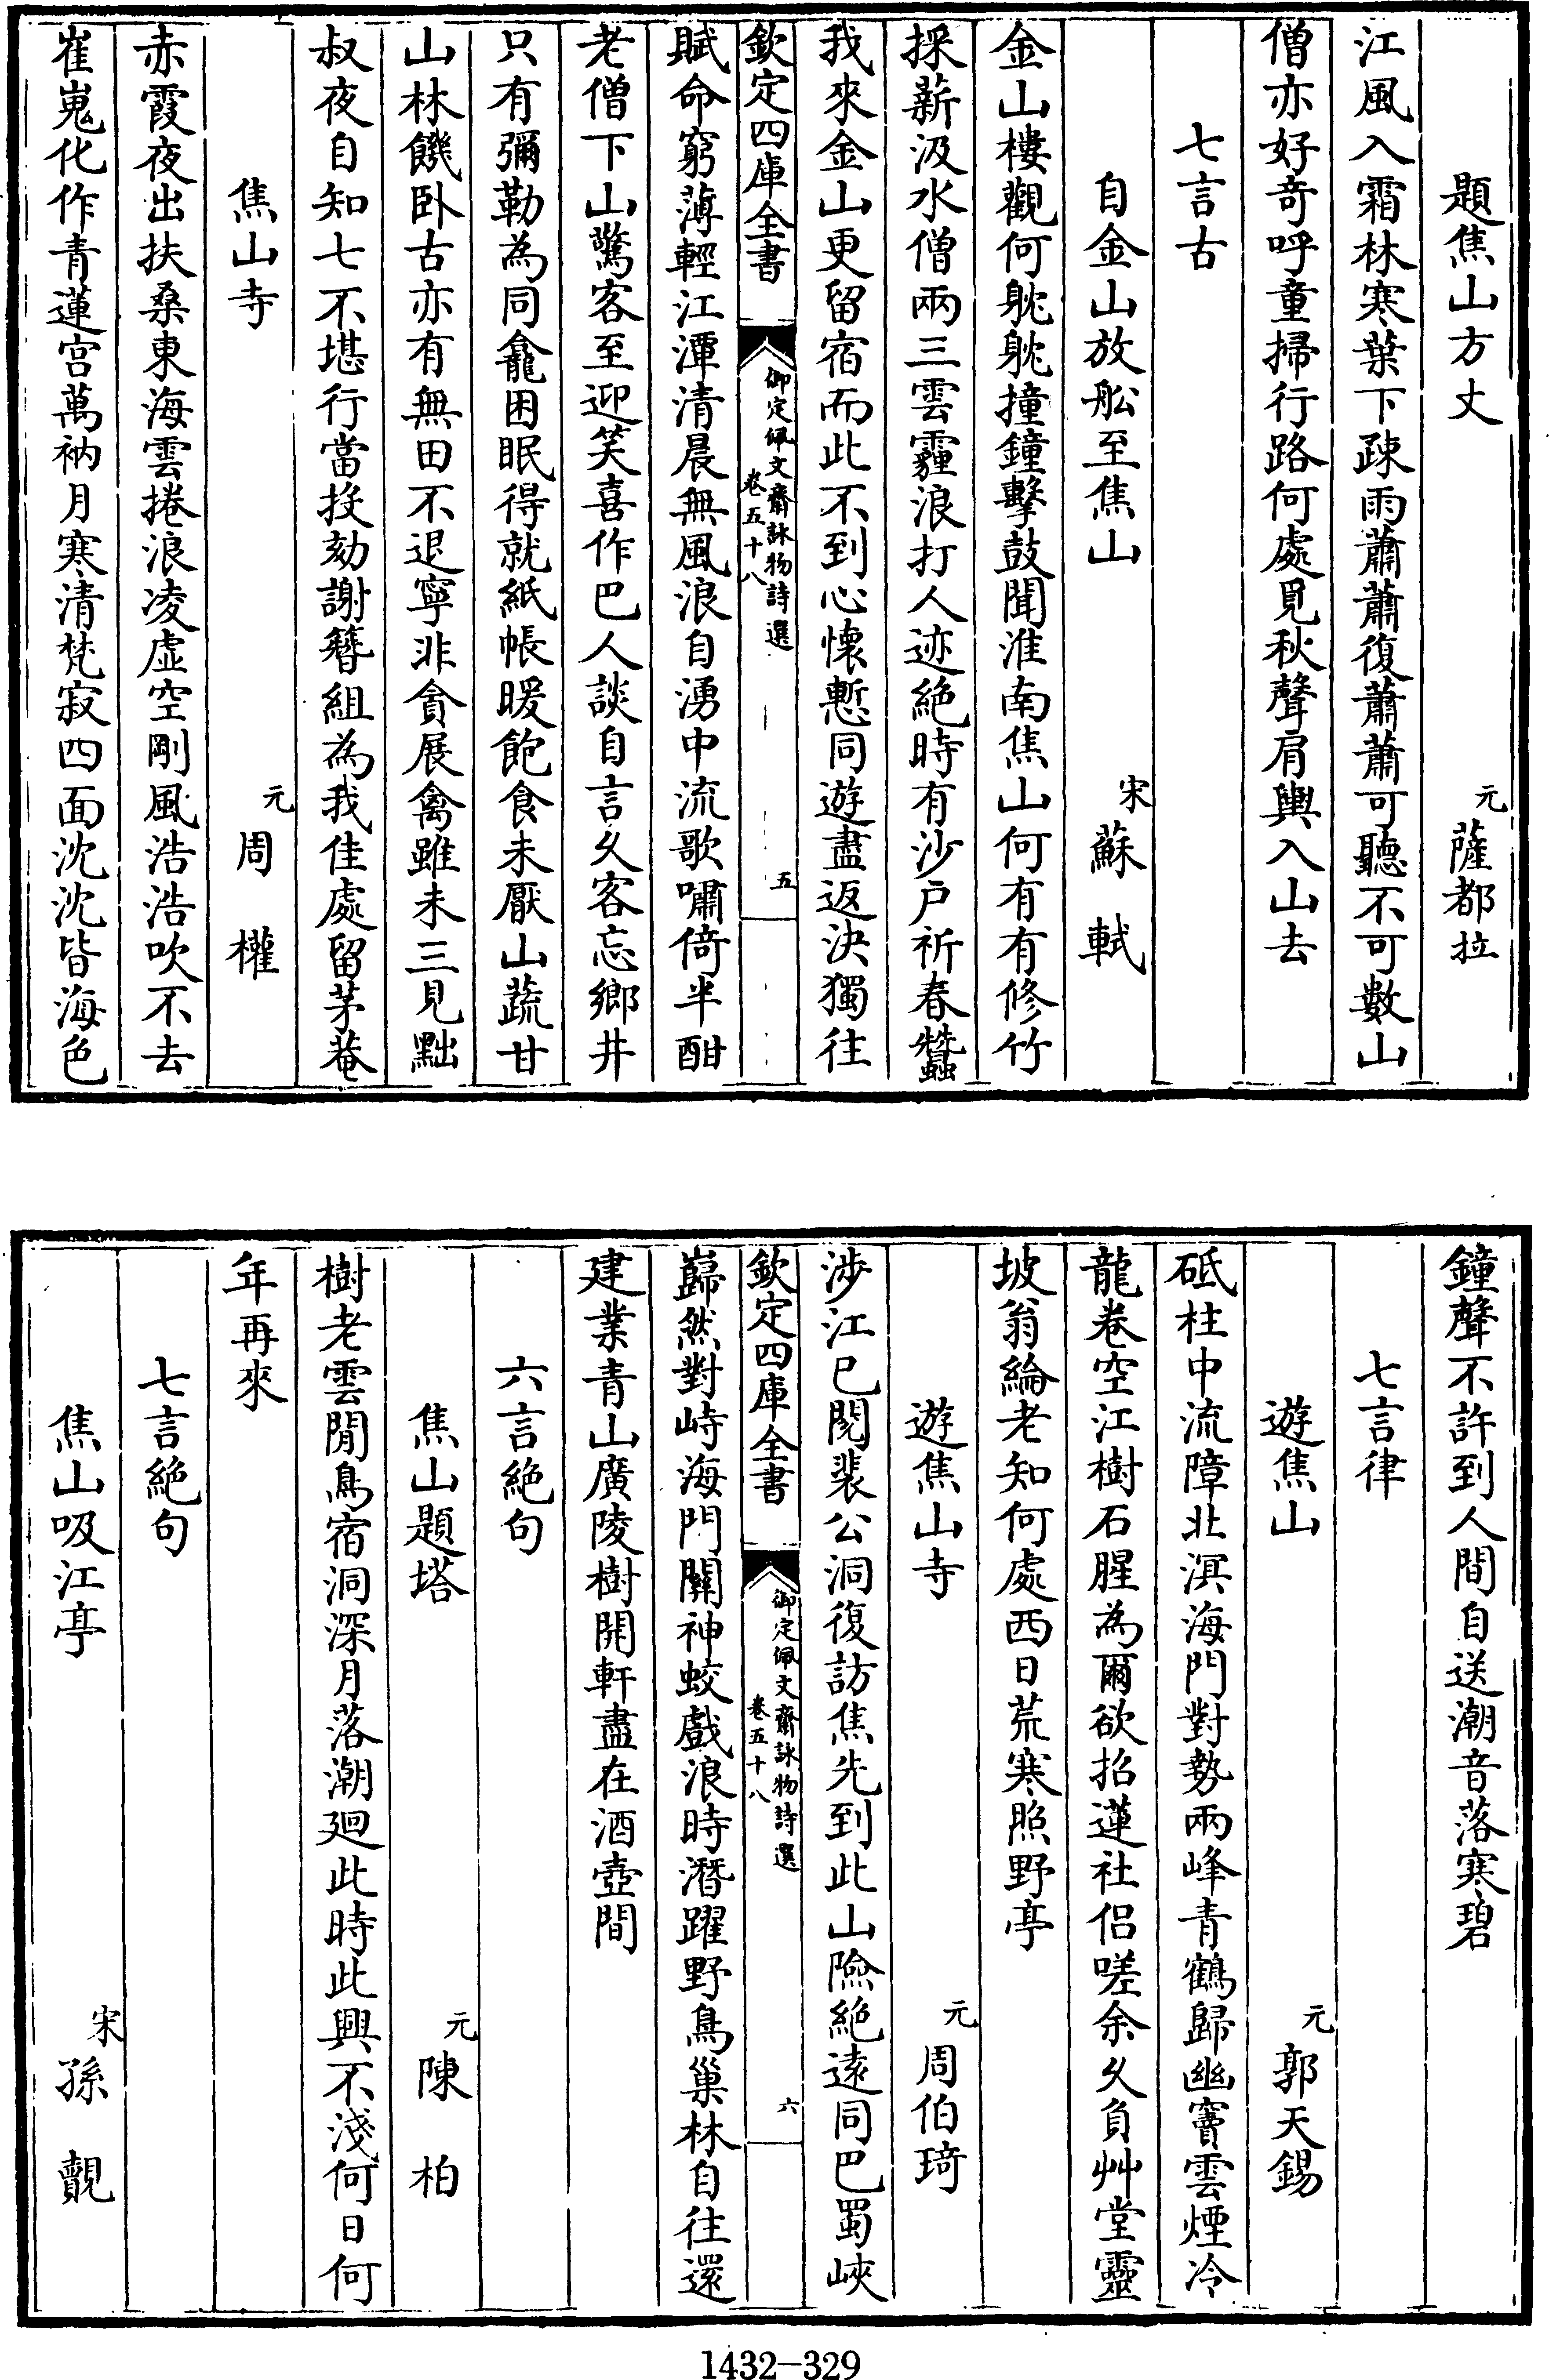 題焦山方丈　元薩都拉
江風入霜林寒葉下疎雨蕭蕭復蕭蕭可聽不可數山
僧亦好奇呼童掃行路何處覓秋聲肩輿入山去
七言古
自金山放船至焦山　宋蘇軾
金山樓觀何躭躭撞鐘擊鼓聞淮南焦山何有有修竹
採薪汲水僧兩三雲霾浪打人迹絶時有沙户祈春蠶
我來金山更留宿而此不到心懷慙同遊盡返決獨往
欽定四庫全書　御定佩文齋詠物詩選　卷五十八　五
賦命窮薄輕江潭清晨無風浪自湧中流歌嘯倚半酣
老僧下山驚客至迎笑喜作巴人談自言久客忘鄉井
只有彌勒為同龕困眠得就紙帳暖飽食未厭山蔬甘
山林饑卧古亦有無田不退寧非貪展禽雖未三見黜
叔夜自知七不堪行當投劾謝簪組為我佳處留茅菴
焦山寺　元周權
赤霞夜出扶桑東海雲捲浪凌虚空剛風浩浩吹不去
崔嵬化作青蓮宫萬衲月寒清梵寂四面沈沈皆海色
鐘聲不許到人間自送潮音落寒碧
七言律
遊焦山　元郭天錫
砥柱中流障北溟海門對勢兩峰青鶴歸幽竇雲煙冷
龍卷空江樹石腥為爾欲招蓮社侣嗟余久負艸堂靈
坡翁綸老知何處西日荒寒照野亭
遊焦山寺　元周伯琦
涉江已閱裴公洞復訪焦先到此山險絶遠同巴蜀峽
欽定四庫全書　御定佩文齋詠物詩選　卷五十八　六
巋然對峙海門關神蛟戲浪時潛躍野鳥巢林自往還
建業青山廣陵樹開軒盡在酒壺間
六言絶句
焦山題塔　元陳柏
樹老雲閒鳥宿洞深月落潮廻此時此興不淺何日何
年再來
七言絶句
焦山吸江亭　宋孫覿
1432-329